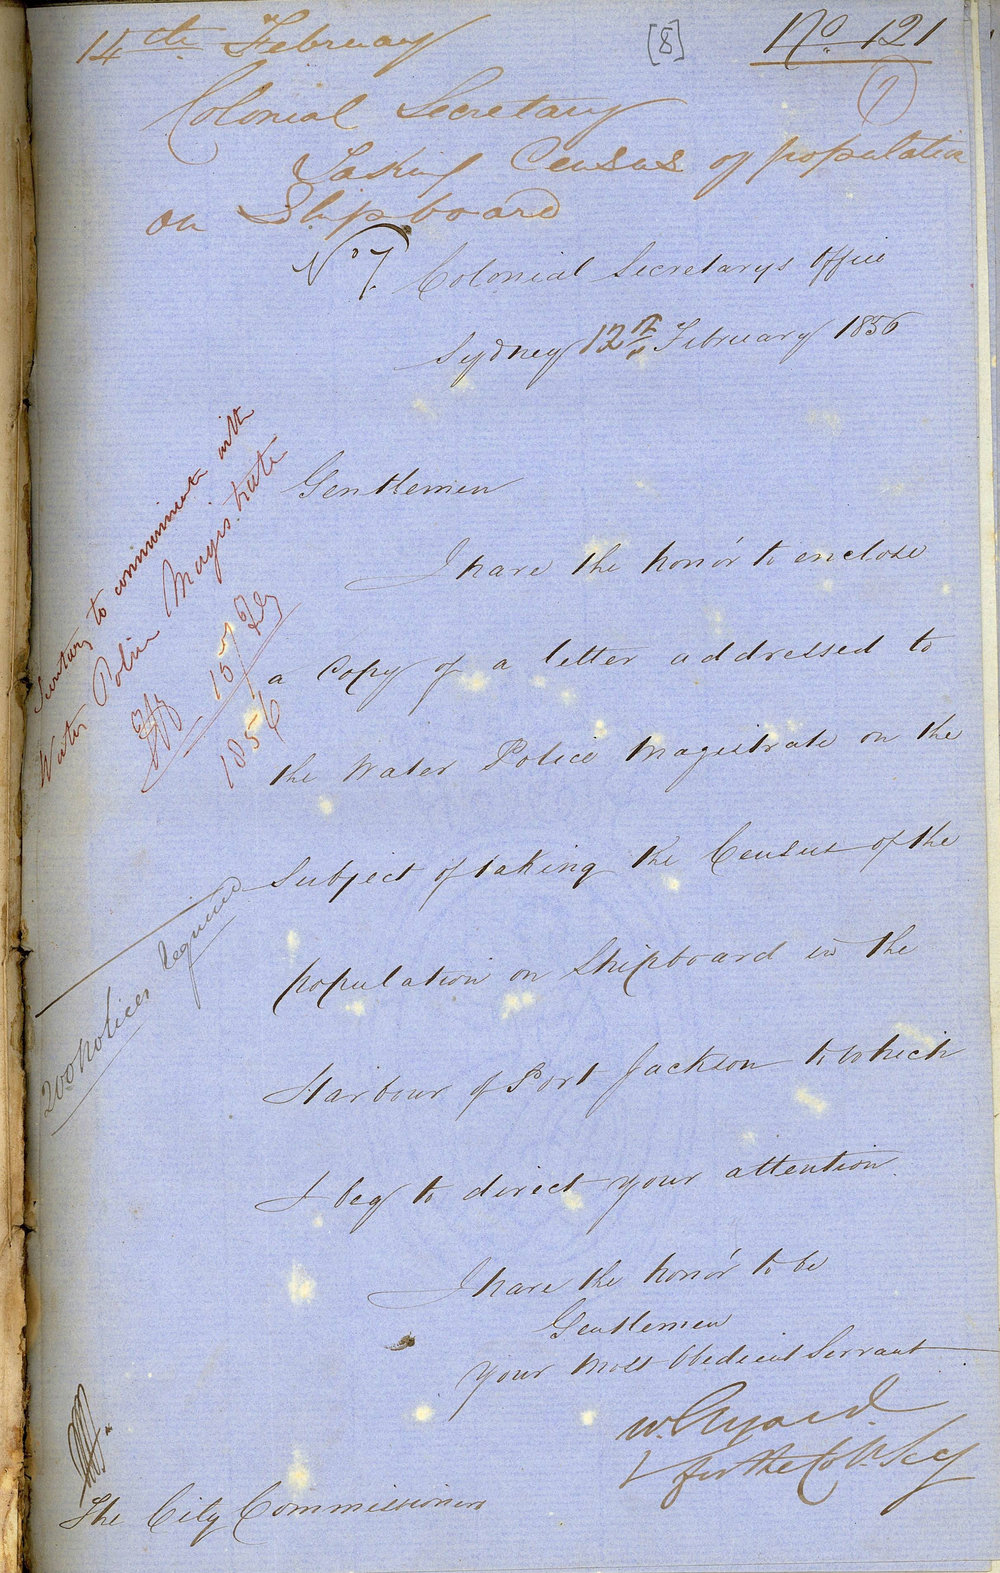 14th February
[8]
No 121
7
Colonial Secretary
Taking Census of population
on Shipboard
No 7. Colonial Secretarys Office
Sydney 12th February 1856
Gentlemen
I have the honor to enclose
a Copy of a letter addressed to
the Water Police Magistrate on the
Subject of taking the Census of the
population on Shipboard in the
Harbour of Port Jackson to which
I beg to direct your attention
I have the honor to be
Gentlemen
Your Most Obedient Servant
W. Elyard
for the Col Secy
The City Commissioners
Secretary to communicate with
Water Police Magistrate
15/Feby
1856
200 Notices required